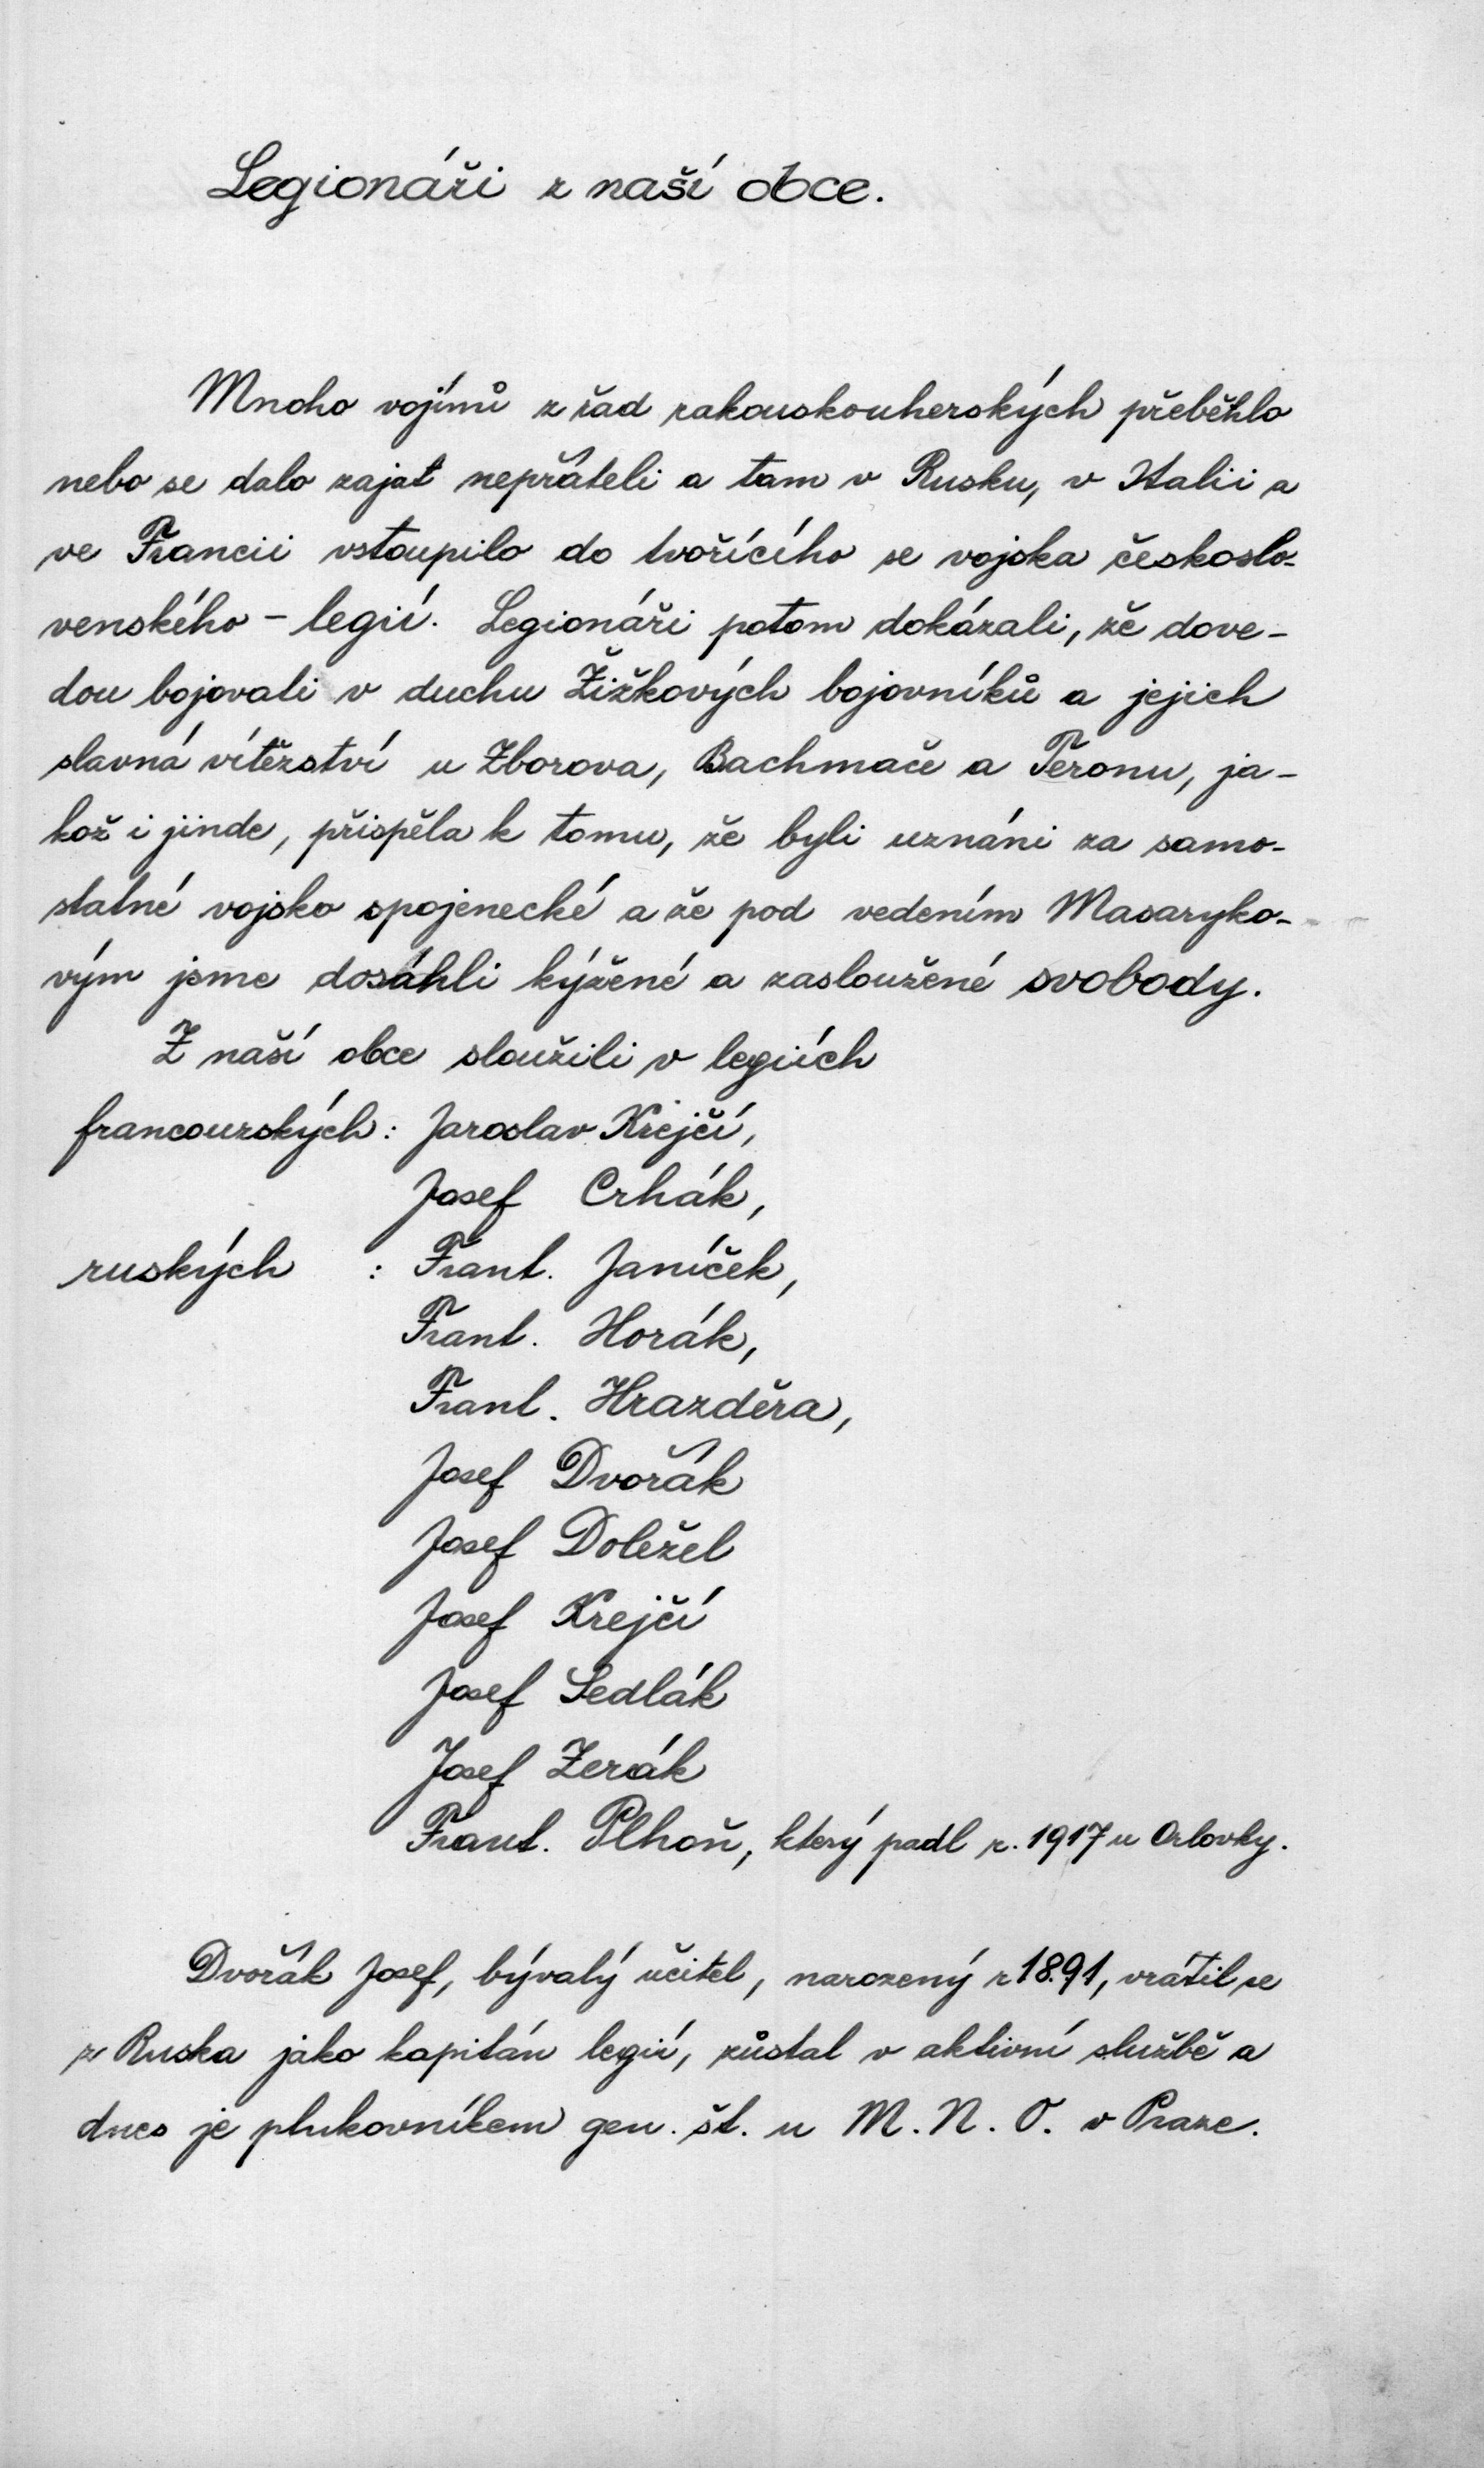 Legionáři z naší obce.
Mnoho vojínů z řad rakouskouherských přeběhlo
nebo se dalo zajat nepřáteli a tam v Rusku, v Italii a
ve Francii vstoupilo do tvořícího se vojska českoslo-
venského - legií. Legionáři potom dokázali, že dove-
dou bojovati v duchu Žižkových bojovníků a jejich
slavná vítězství u Zborova, Bachmače a Teronu, ja-
kož i jinde, přispěla k tomu, že byli uznáni za samo-
statné vojsko spojenecké a že pod vedením Masaryko-
vým jsme dosáhli kýžené a zasloužené svobody.
Z naší obce sloužili v legiích
francouzských: Jaroslav Krejčí,
Josef Crhák,
ruských : Frant. Janíček,
Frant. Horák,
Frant. Hrazděra,
Josef Dvořák
Josef Doležel
Josef Krejčí
Josef Sedlák
Josef Zerák
Frant. Plhoň, který padl r. 1917 u Orlovky.
Dvořák Josef, bývalý učitel, narozený r 1891, vrátil se
z Ruska jako kapitán legií, zůstal v aktivní službě a
dnes je plukovníkem gen. št. u M. N. O. v Praze.